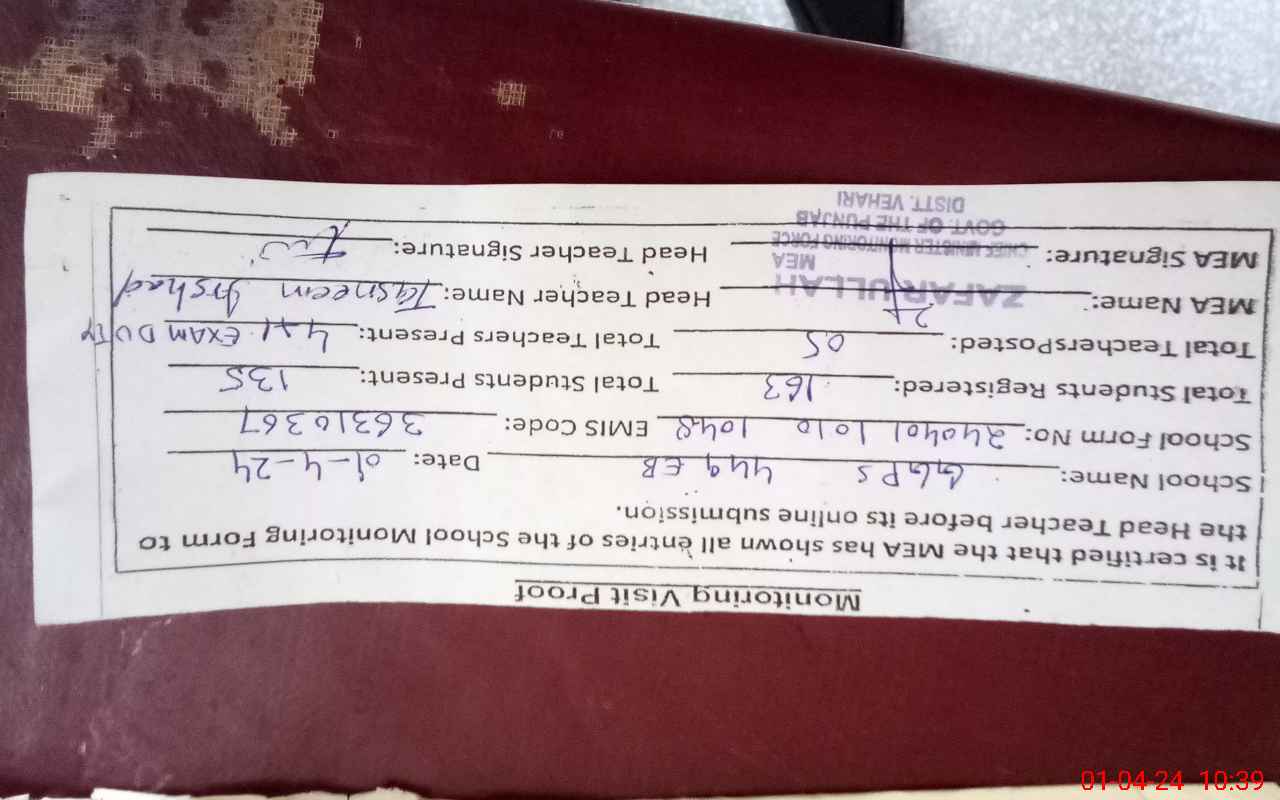 Monitoring Visit Proof
It is certified that the MEA has shown all entries of the School Monitoring Form to
the Head Teacher before its online submission.
School Name: GGPS 449 EB Date: 01-4-24
School Form No: 240401 1010 1048 EMIS Code: 36310367
Total Students Registered: 163 Total Students Present: 135
Total TeachersPosted: 05 Total Teachers Present: 4+1 EXAM DUTY
MEA Name: ZAFAR ULLAH Head Teacher Name: Tasneem Irshad
MEA
MEA Signature: CHIEF MINISTER MONITORING FORCE Head Teacher Signature:
GOVT. OF THE PUNJAB
DISTT. VEHARI
01-04-24 10:39